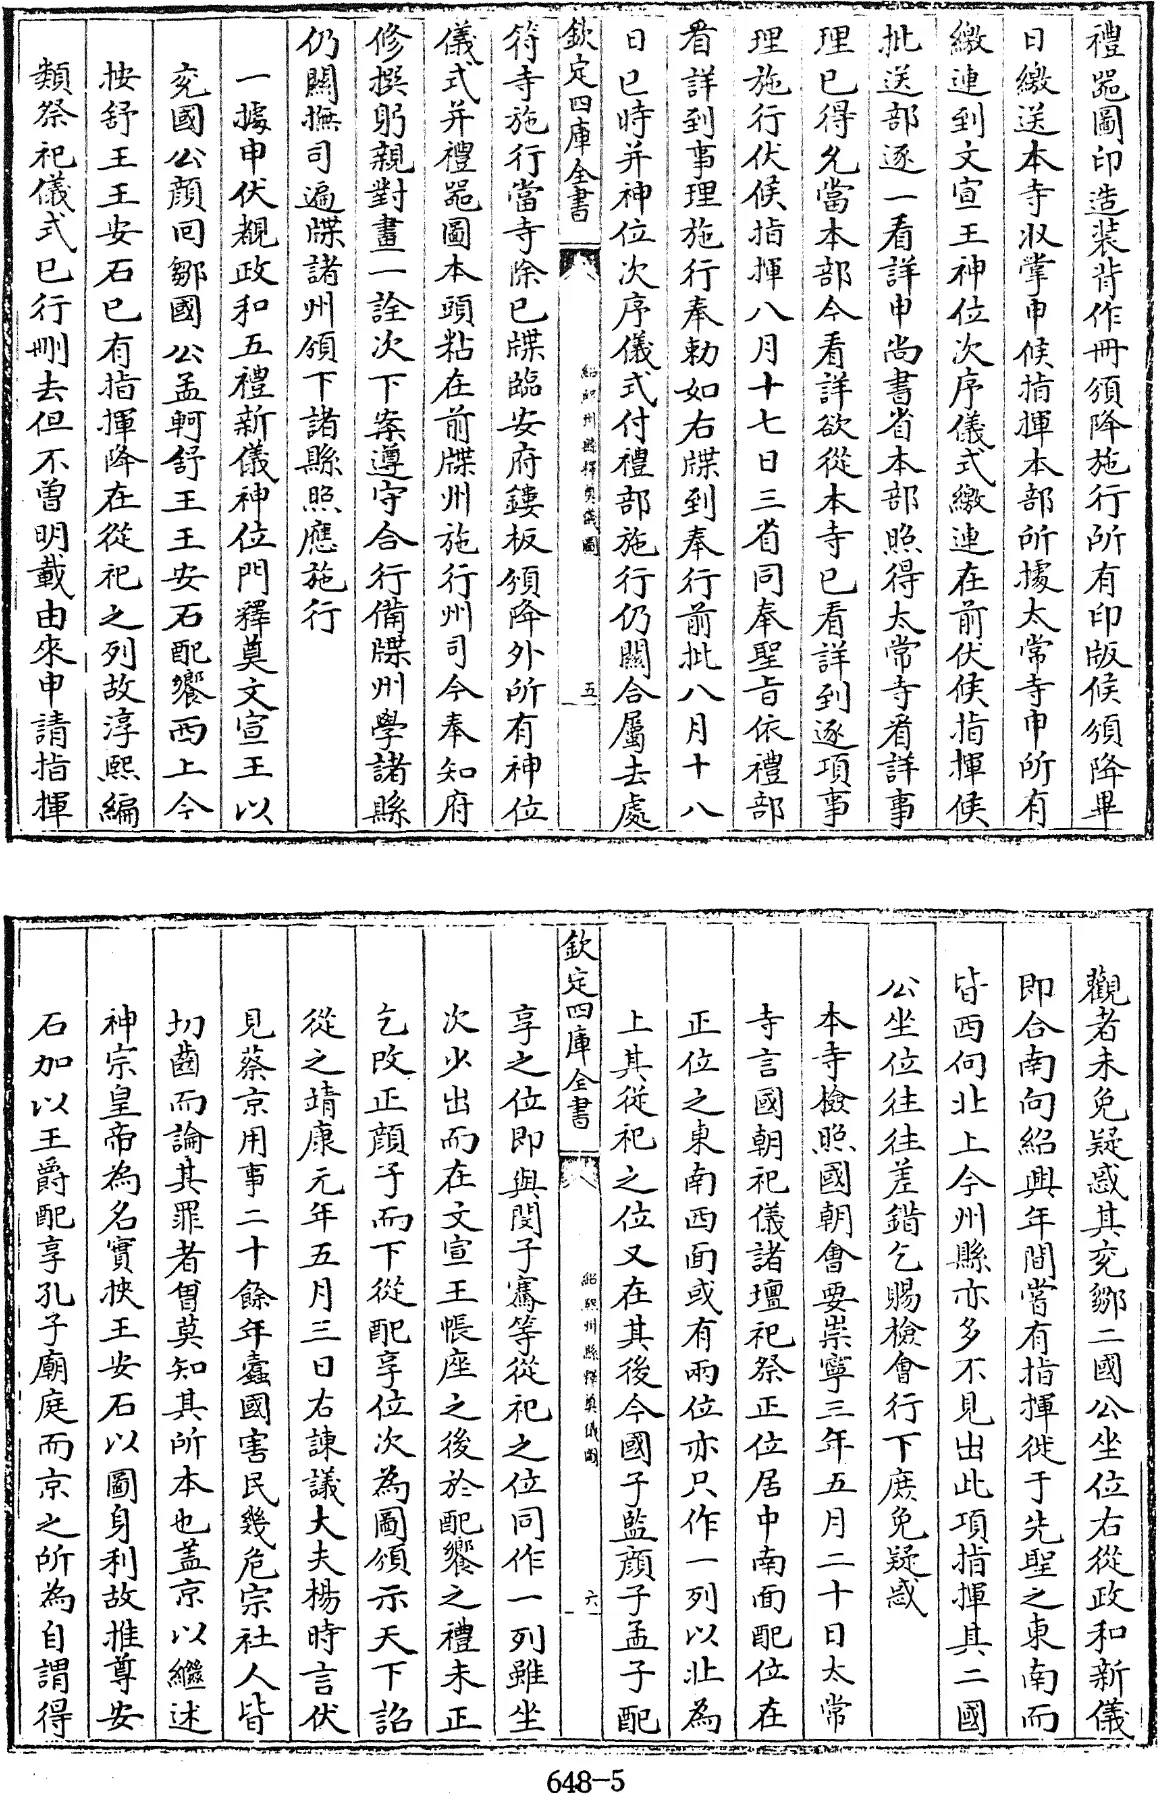 禮器圖印造裝背作冊頒降施行所有印版候頒降畢
日繳送本寺收掌申候指揮本部所據太常寺申所有
繳連到文宣王神位次序儀式繳連在前伏候指揮候
批送部逐一看詳申尚書省本部照得太常寺看詳事
理已得允當本部今看詳欲從本寺已看詳到逐項事
理施行伏候指揮八月十七日三省同奉聖旨依禮部
看詳到事理施行奉勅如右牒到奉行前批八月十八
日巳時并神位次序儀式付禮部施行仍關合屬去處
欽定四庫全書
紹熙州縣釋奠儀圖
五
符寺施行當寺除已牒臨安府鏤板頒降外所有神位
儀式并禮器圖本頭粘在前牒州施行州司今奉知府
修撰躬親對畫一詮次下案遵守合行備牒州學諸縣
仍關撫司遍牒諸州頒下諸縣照應施行
一據申伏覩政和五禮新儀神位門釋奠文宣王以
兖國公顔回鄒國公孟軻舒王王安石配饗西上今
按舒王王安石已有指揮降在從祀之列故淳熙編
類祭祀儀式已行刪去但不曾明載由來申請指揮
觀者未免疑惑其兖鄒二國公坐位右從政和新儀
即合南向紹興年間嘗有指揮徙于先聖之東南而
皆西向北上今州縣亦多不見出此項指揮其二國
公坐位往往差錯乞賜檢會行下庶免疑惑
本寺檢照國朝會要崇寧三年五月二十日太常
寺言國朝祀儀諸壇祀祭正位居中南面配位在
正位之東南西面或有兩位亦只作一列以北為
上其從祀之位又在其後今國子監顔子孟子配
欽定四庫全書
紹熙州縣釋奠儀圖
六
享之位即與閔子騫等從祀之位同作一列雖坐
次少出而在文宣王帳座之後於配饗之禮未正
乞改正顔子而下從配享位次為圖頒示天下詔
從之靖康元年五月三日右諫議大夫楊時言伏
見蔡京用事二十餘年蠹國害民幾危宗社人皆
切齒而論其罪者曽莫知其所本也蓋京以繼述
神宗皇帝為名實挾王安石以圖身利故推尊安
石加以王爵配享孔子廟庭而京之所為自謂得
648-5